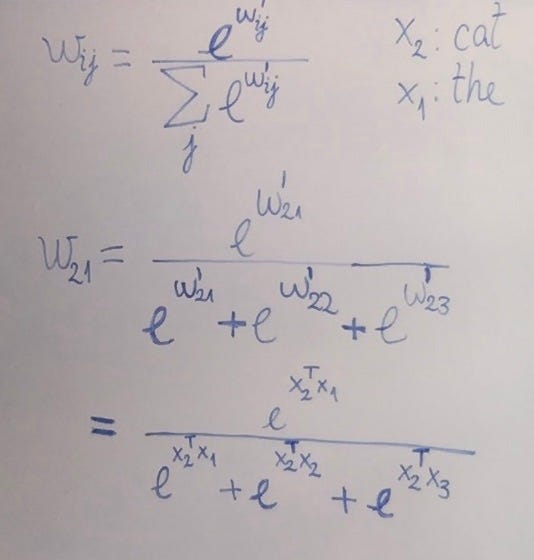 Wij = e^w'ij / ∑j e^w'ij
x₂: cat
x₁: the
W₂₁ = e^w'₂₁ / e^w'₂₁ + e^w'₂₂ + e^w'₂₃
= e^x₂ᵀx₁ / e^x₂ᵀx₁ + e^x₂ᵀx₂ + e^x₂ᵀx₃